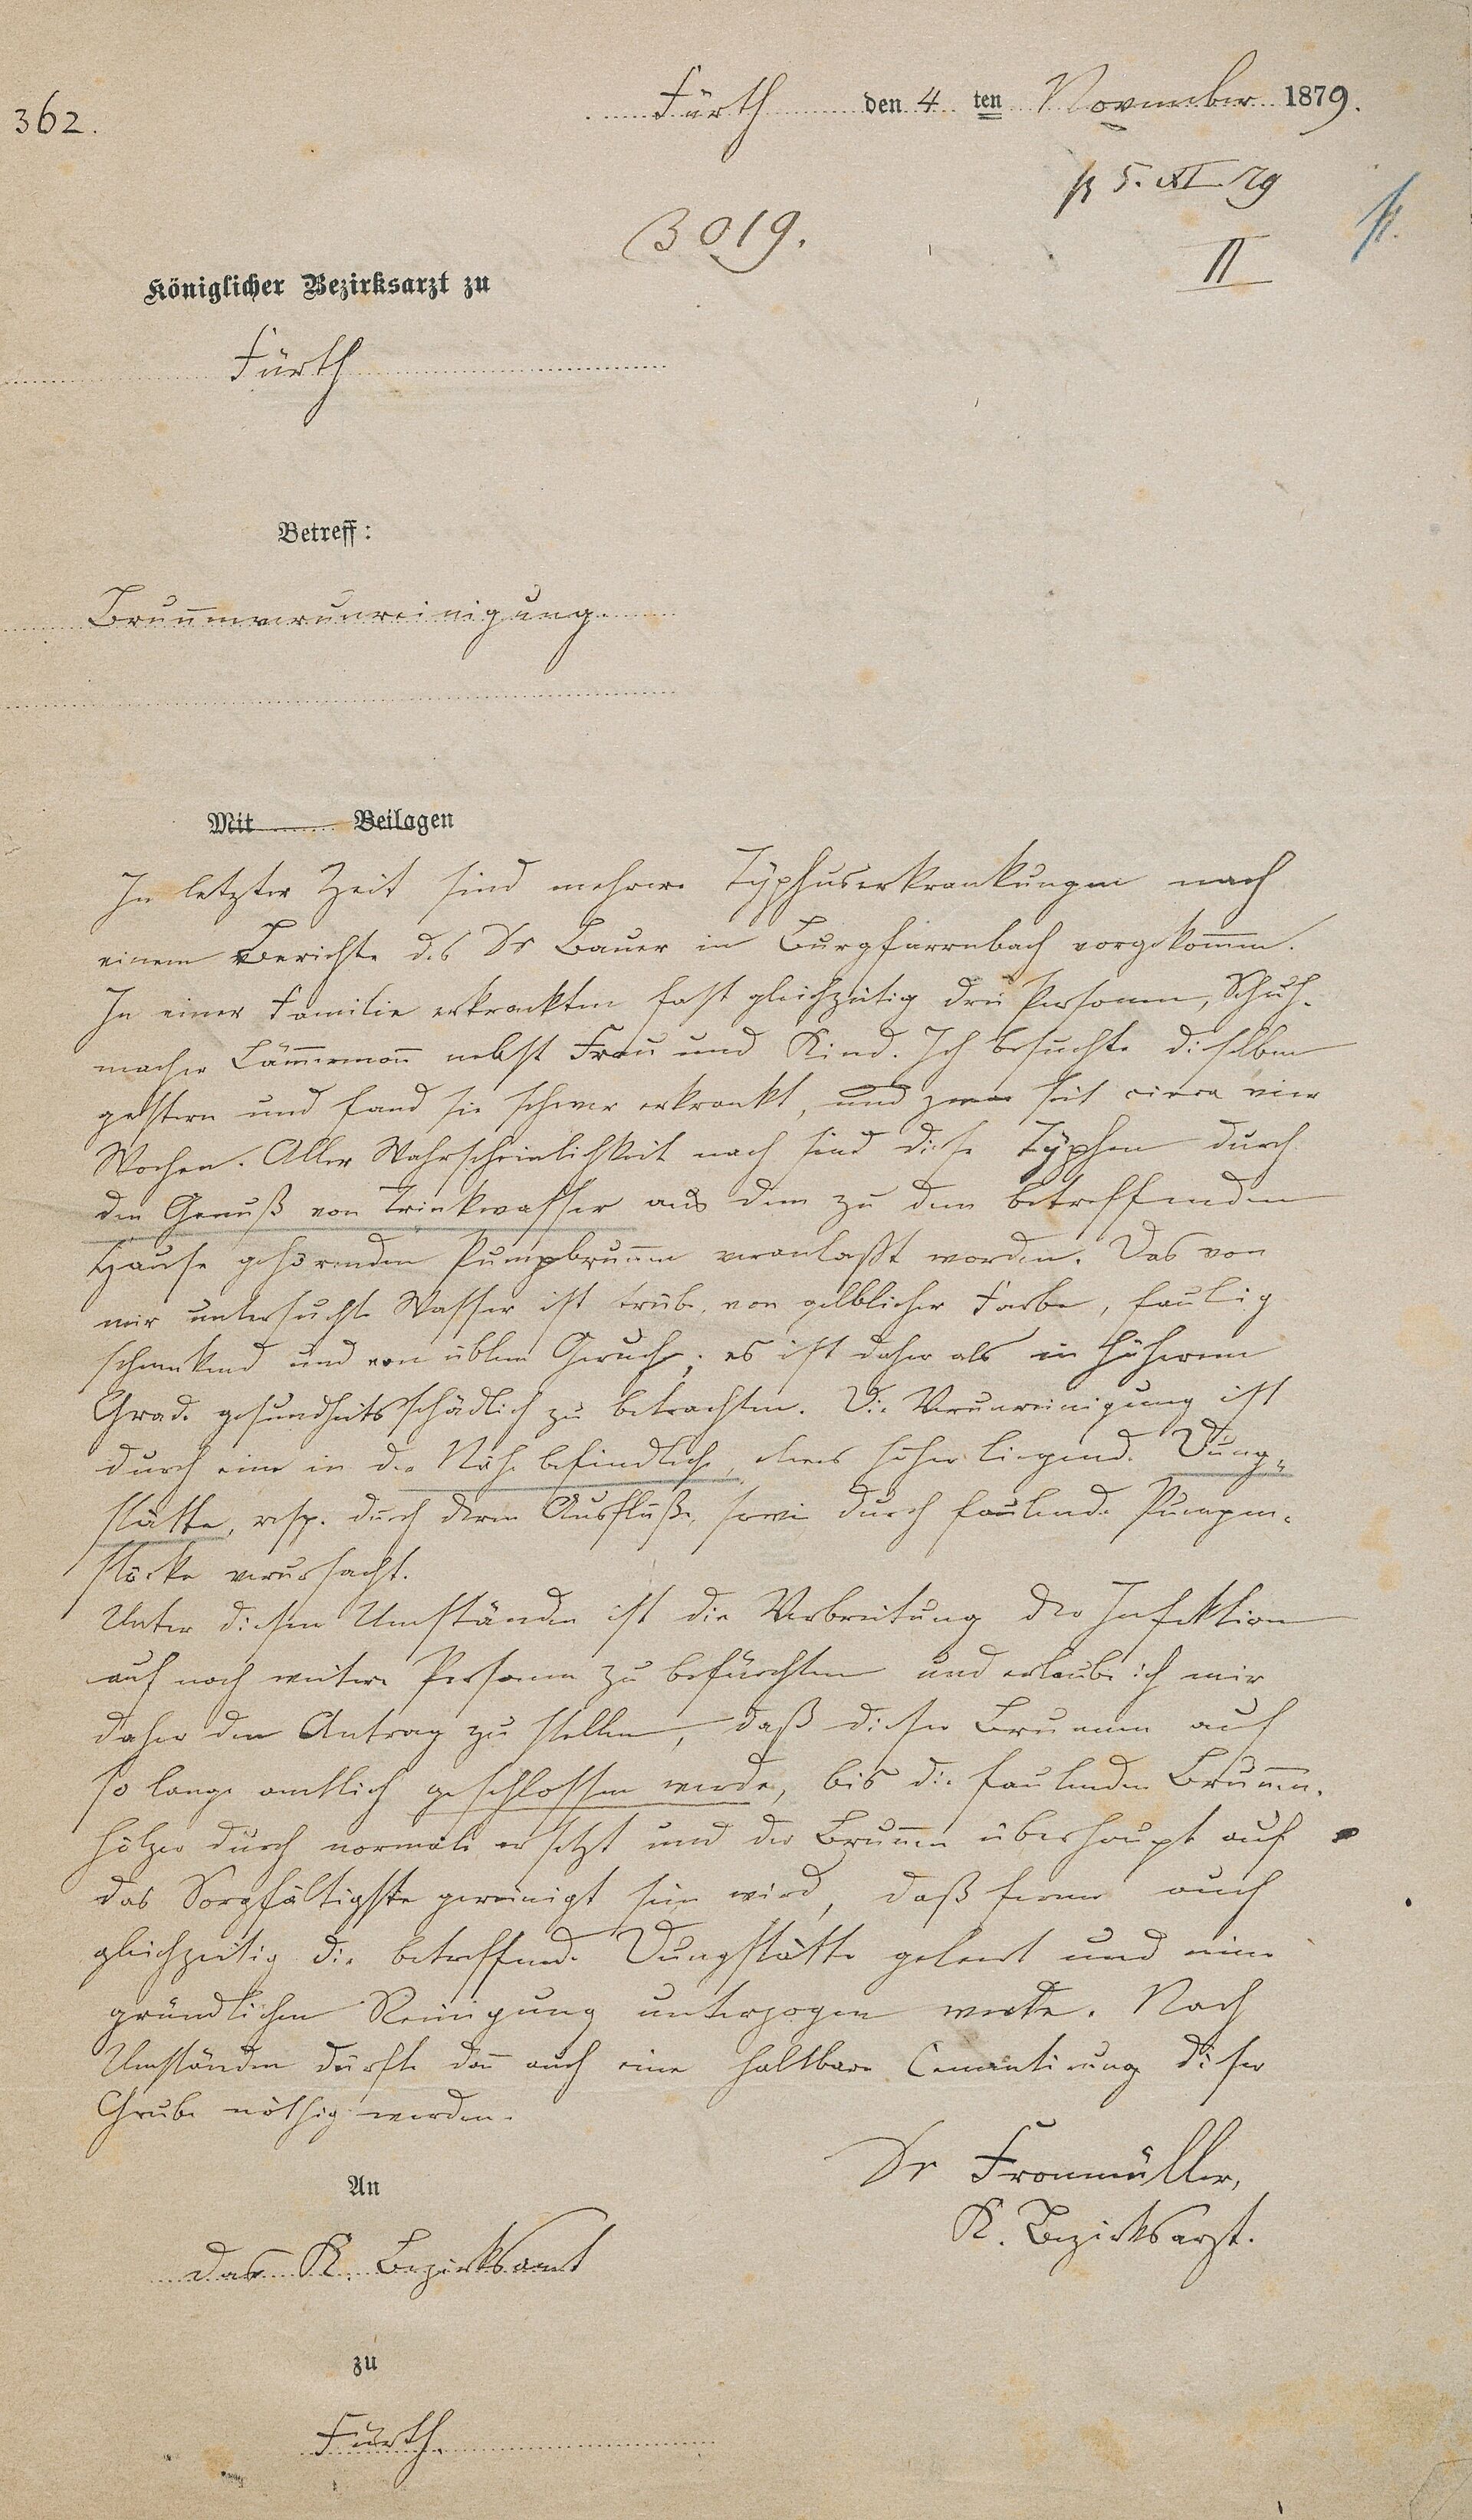 362.
Fürth den 4 ten November 1879.
5. XI 79
3019.
II
Königlicher Bezirksarzt zu
Fürth
Betreff:
Brunnenverunreinigung.
Mit Beilagen
In letzter Zeit sind mehrere Typhuserkrankungen nach
einem Berichte des Dr Bauer in Burgfarrnbach vorgekommen.
In einer Familie erkrankten fast gleichzeitig drei Personen, Schuh-
macher Lämmermann nebst Frau und Kind. Ich besuchte dieselben
gestern und fand sie schwer erkrankt, und zwar seit circa vier
Wochen. Aller Wahrscheinlichkeit nach sind diese Typhen durch
den Genuß von Trinkwasser aus dem zu dem betreffenden
Hause gehörenden Pumpbrunnen veranlaßt worden. Das von
mir untersuchte Wasser ist trübe, von gelblicher Farbe, faulig
schmeckend und von üblem Geruch; es ist daher als in höherem
Grade gesundheitsschädlich zu betrachten. Die Verunreinigung ist
durch eine in der Nähe befindliche, etwas höher liegende Dung-
stätte, resp. durch deren Ausfluße, sowie durch faulende Pumpen-
stöcke verursacht.
Unter diesen Umständen ist die Verbreitung der Infektion
auf noch weitere Personen zu befürchten und erlaube ich mir
daher den Antrag zu stellen, daß dieser Brunnen auf
so lange amtlich geschlossen werde, bis die faulenden Brunnen-
hölzer durch normale ersetzt und der Brunnen überhaupt auf
das Sorgfältigste gereinigt sein wird, daß ferner auch
gleichzeitig die betreffende Dungstätte geleert und einer
gründlichen Reinigung unterzogen werde. Nach
Umständen dürfte dann auch eine haltbare Cementirung dieser
Grube nöthig werden.
Dr Fronmüller,
K. Bezirksarzt.
An
das K. Bezirksamt
zu
Fürth.